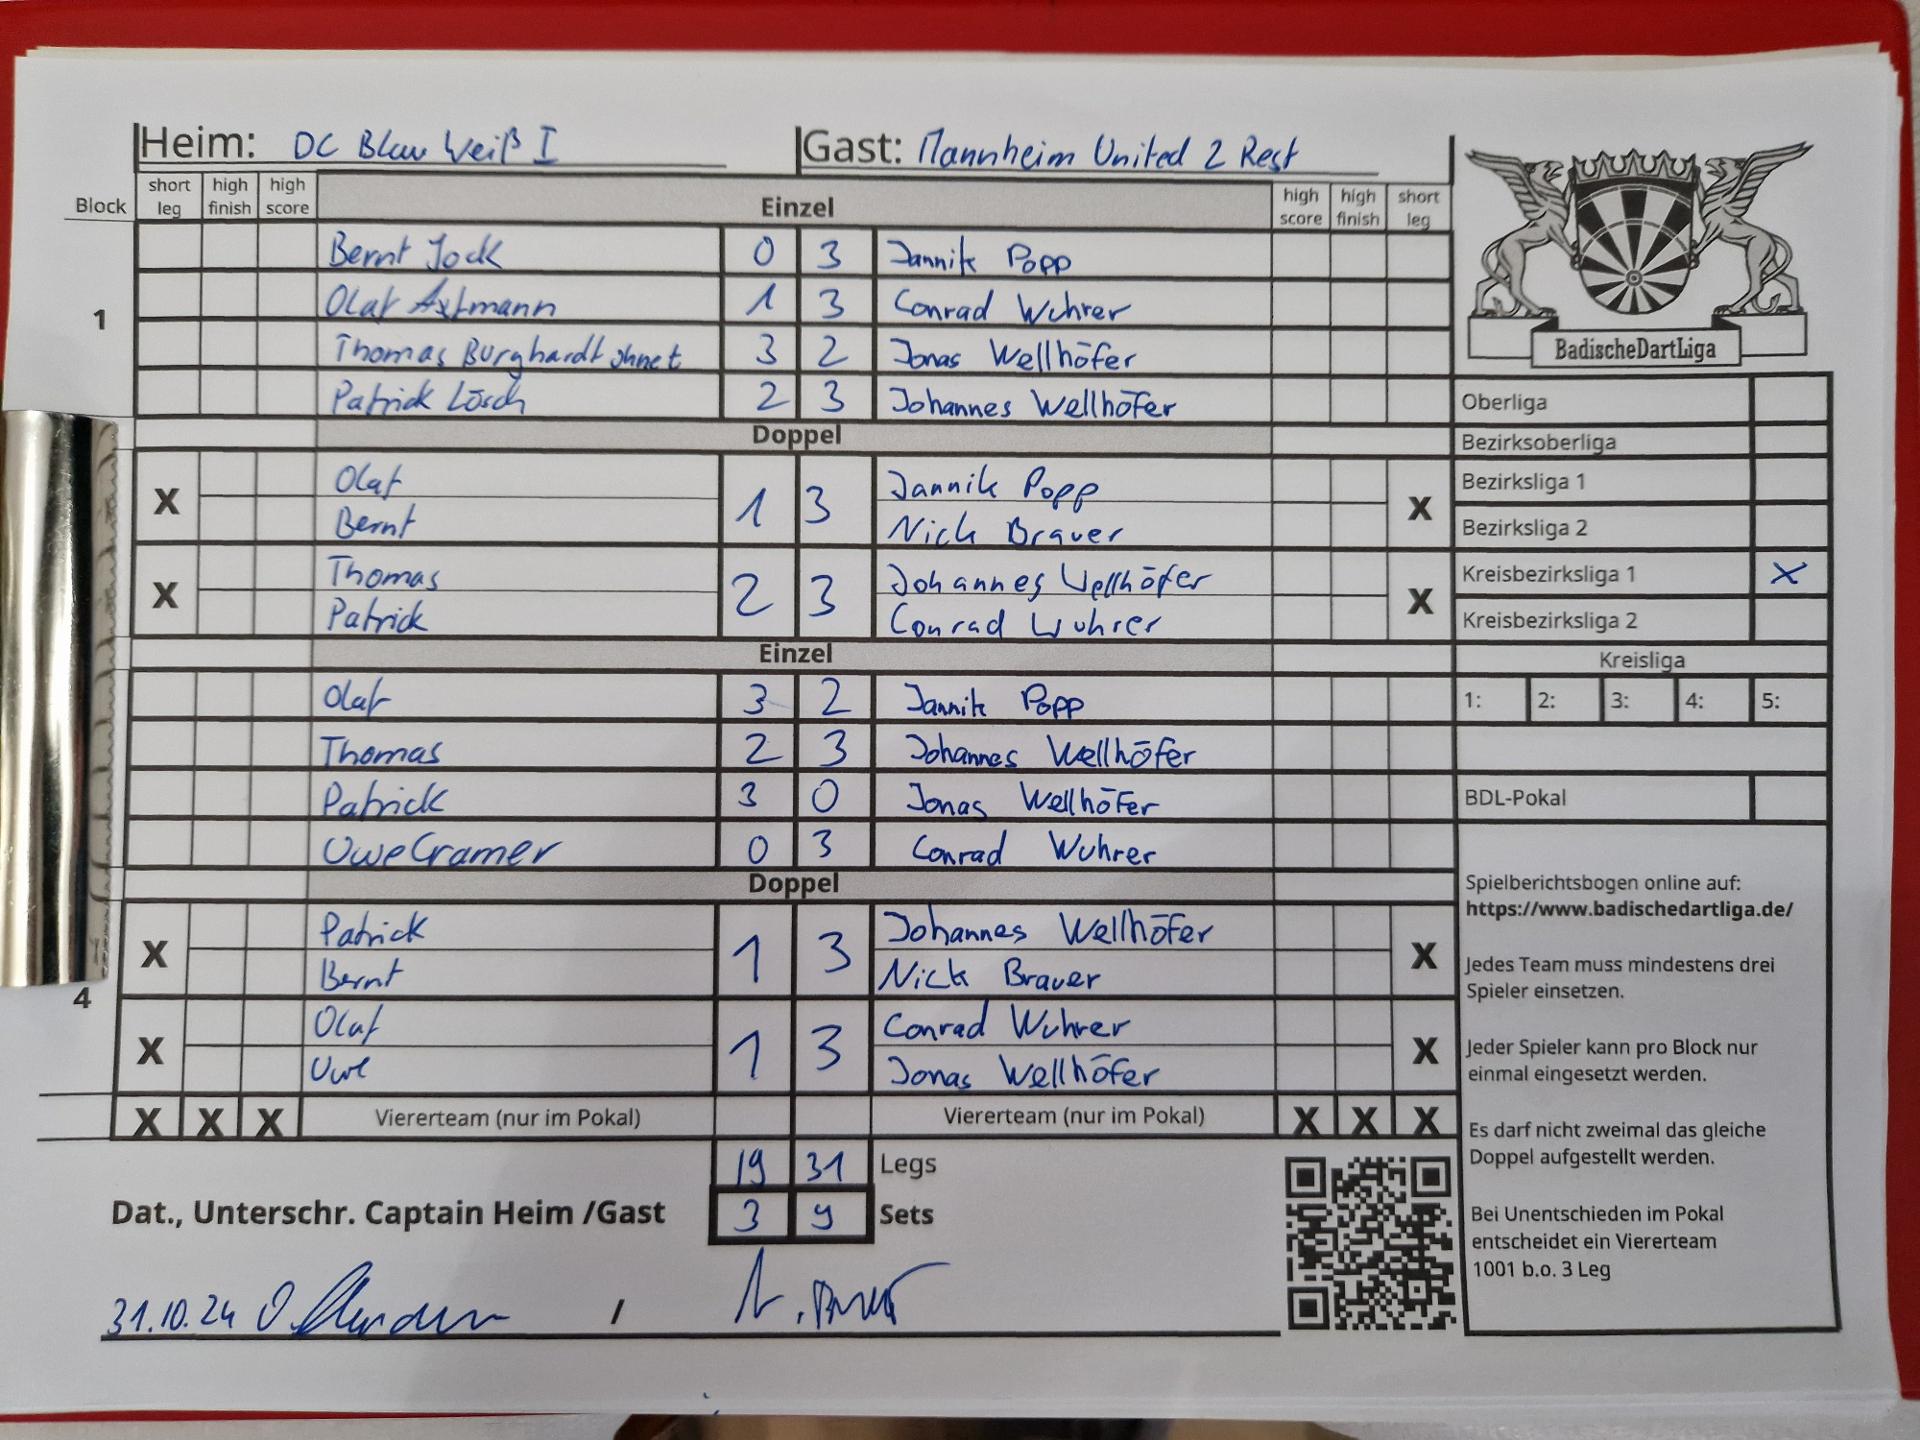 Heim: DC Blau Weiß I Gast: Mannheim United 2 Rest
Block short leg high finish high score Einzel high score high finish short leg
Bernt Jock 0 3 Jannik Popp
1 Olaf Axtmann 1 3 Conrad Wuhrer
Thomas Burghardt ohnet 3 2 Jonas Wellhöfer
Patrick Lösch 2 3 Johannes Wellhöfer
Doppel
X Olaf 1 3 Jannik Popp X
Bernt Nick Brauer
X Thomas 2 3 Johannes Wellhöfer X
Patrick Conrad Wuhrer
Einzel
Olaf 3 2 Jannik Popp
Thomas 2 3 Johannes Wellhöfer
Patrick 3 0 Jonas Wellhöfer
Uwe Cramer 0 3 Conrad Wuhrer
Doppel
X Patrick 1 3 Johannes Wellhöfer X
Bernt Nick Brauer
4
X Olaf 1 3 Conrad Wuhrer X
Uwe Jonas Wellhöfer
X X X Viererteam (nur im Pokal) Viererteam (nur im Pokal) X X X
19 31 Legs
Dat., Unterschr. Captain Heim /Gast 3 9 Sets
31.10.24 /
BadischeDartLiga
Oberliga
Bezirksoberliga
Bezirksliga 1
Bezirksliga 2
Kreisbezirksliga 1 X
Kreisbezirksliga 2
Kreisliga
1: 2: 3: 4: 5:
BDL-Pokal
Spielberichtsbogen online auf:
https://www.badischedartliga.de/
Jedes Team muss mindestens drei
Spieler einsetzen.
Jeder Spieler kann pro Block nur
einmal eingesetzt werden.
Es darf nicht zweimal das gleiche
Doppel aufgestellt werden.
Bei Unentschieden im Pokal
entscheidet ein Viererteam
1001 b.o. 3 Leg